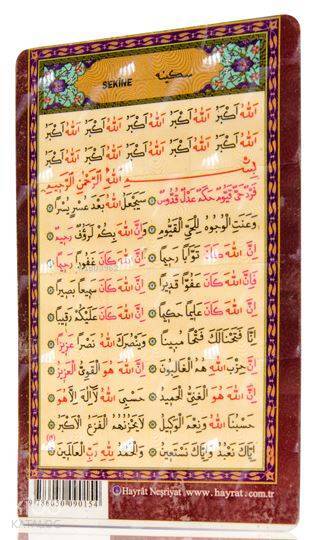 سكينه
SEKİNE
اَللّٰهُ اَكْبَرُ اَللّٰهُ اَكْبَرُ اَللّٰهُ اَكْبَرُ اَللّٰهُ اَكْبَرُ اَللّٰهُ اَكْبَرُ
اَللّٰهُ اَكْبَرُ اَللّٰهُ اَكْبَرُ اَللّٰهُ اَكْبَرُ اَللّٰهُ اَكْبَرُ اَللّٰهُ اَكْبَرُ
بِسْمِ اللّٰهِ الرَّحْمٰنِ الرَّحِيمِ
فَرْدٌ حَيٌّ قَيُّومٌ حَكَمٌ عَدْلٌ قُدُّوسٌ سَيَجْعَلُ اللّٰهُ بَعْدَ عُسْرٍ يُسْرًا
وَعَنَتِ الْوُجُوهُ لِلْحَيِّ الْقَيُّومِ وَاِنَّ اللّٰهَ بِكُمْ لَرَؤُفٌ رَحِيمٌ
اِنَّ اللّٰهَ كَانَ تَوَّابًا رَحِيمًا اِنَّ اللّٰهَ كَانَ غَفُورًا رَحِيمًا
فَاِنَّ اللّٰهَ كَانَ عَفُوًّا قَدِيرًا اِنَّ اللّٰهَ كَانَ سَمِيعًا بَصِيرًا
اِنَّ اللّٰهَ كَانَ عَلِيمًا حَكِيمًا اِنَّ اللّٰهَ كَانَ عَلَيْكُمْ رَقِيبًا
اِنَّا فَتَحْنَا لَكَ فَتْحًا مُبِينًا وَيَنْصُرَكَ اللّٰهُ نَصْرًا عَزِيزًا
اِنَّ حِزْبَ اللّٰهِ هُمُ الْغَالِبُونَ اِنَّ اللّٰهَ هُوَ الْقَوِيُّ الْعَزِيزُ
اِنَّ اللّٰهَ هُوَ الْغَنِيُّ الْحَمِيدُ حَسْبِيَ اللّٰهُ لَا اِلٰهَ اِلَّا هُوَ
حَسْبُنَا اللّٰهُ وَنِعْمَ الْوَكِيلُ لَا يَحْزُنُهُمُ الْفَزَعُ الْاَكْبَرُ
اِيَّاكَ نَعْبُدُ وَاِيَّاكَ نَسْتَعِينُ وَالْحَمْدُ لِلّٰهِ رَبِّ الْعَالَمِينَ
9 786050 090154
© Hayrât Neşriyat www.hayrat.com.tr